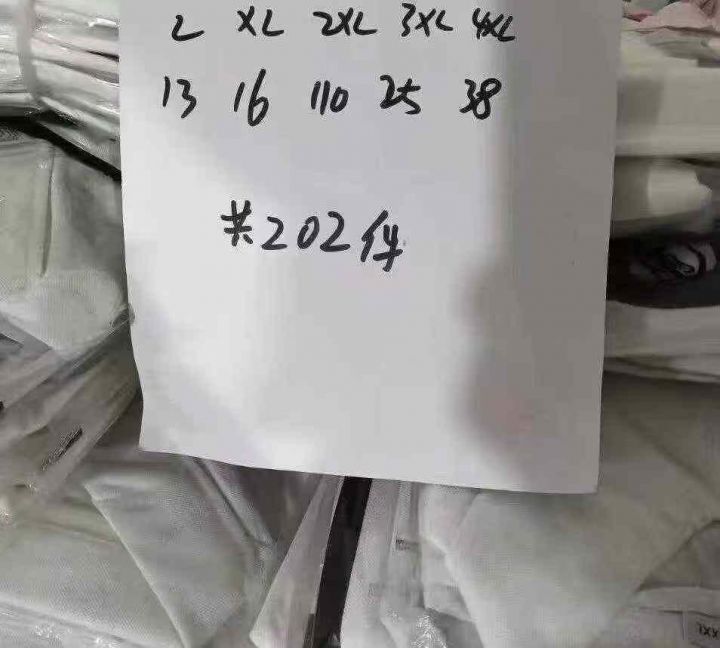 L XL 2XL 3XL 4XL
13 16 110 25 38
共202件